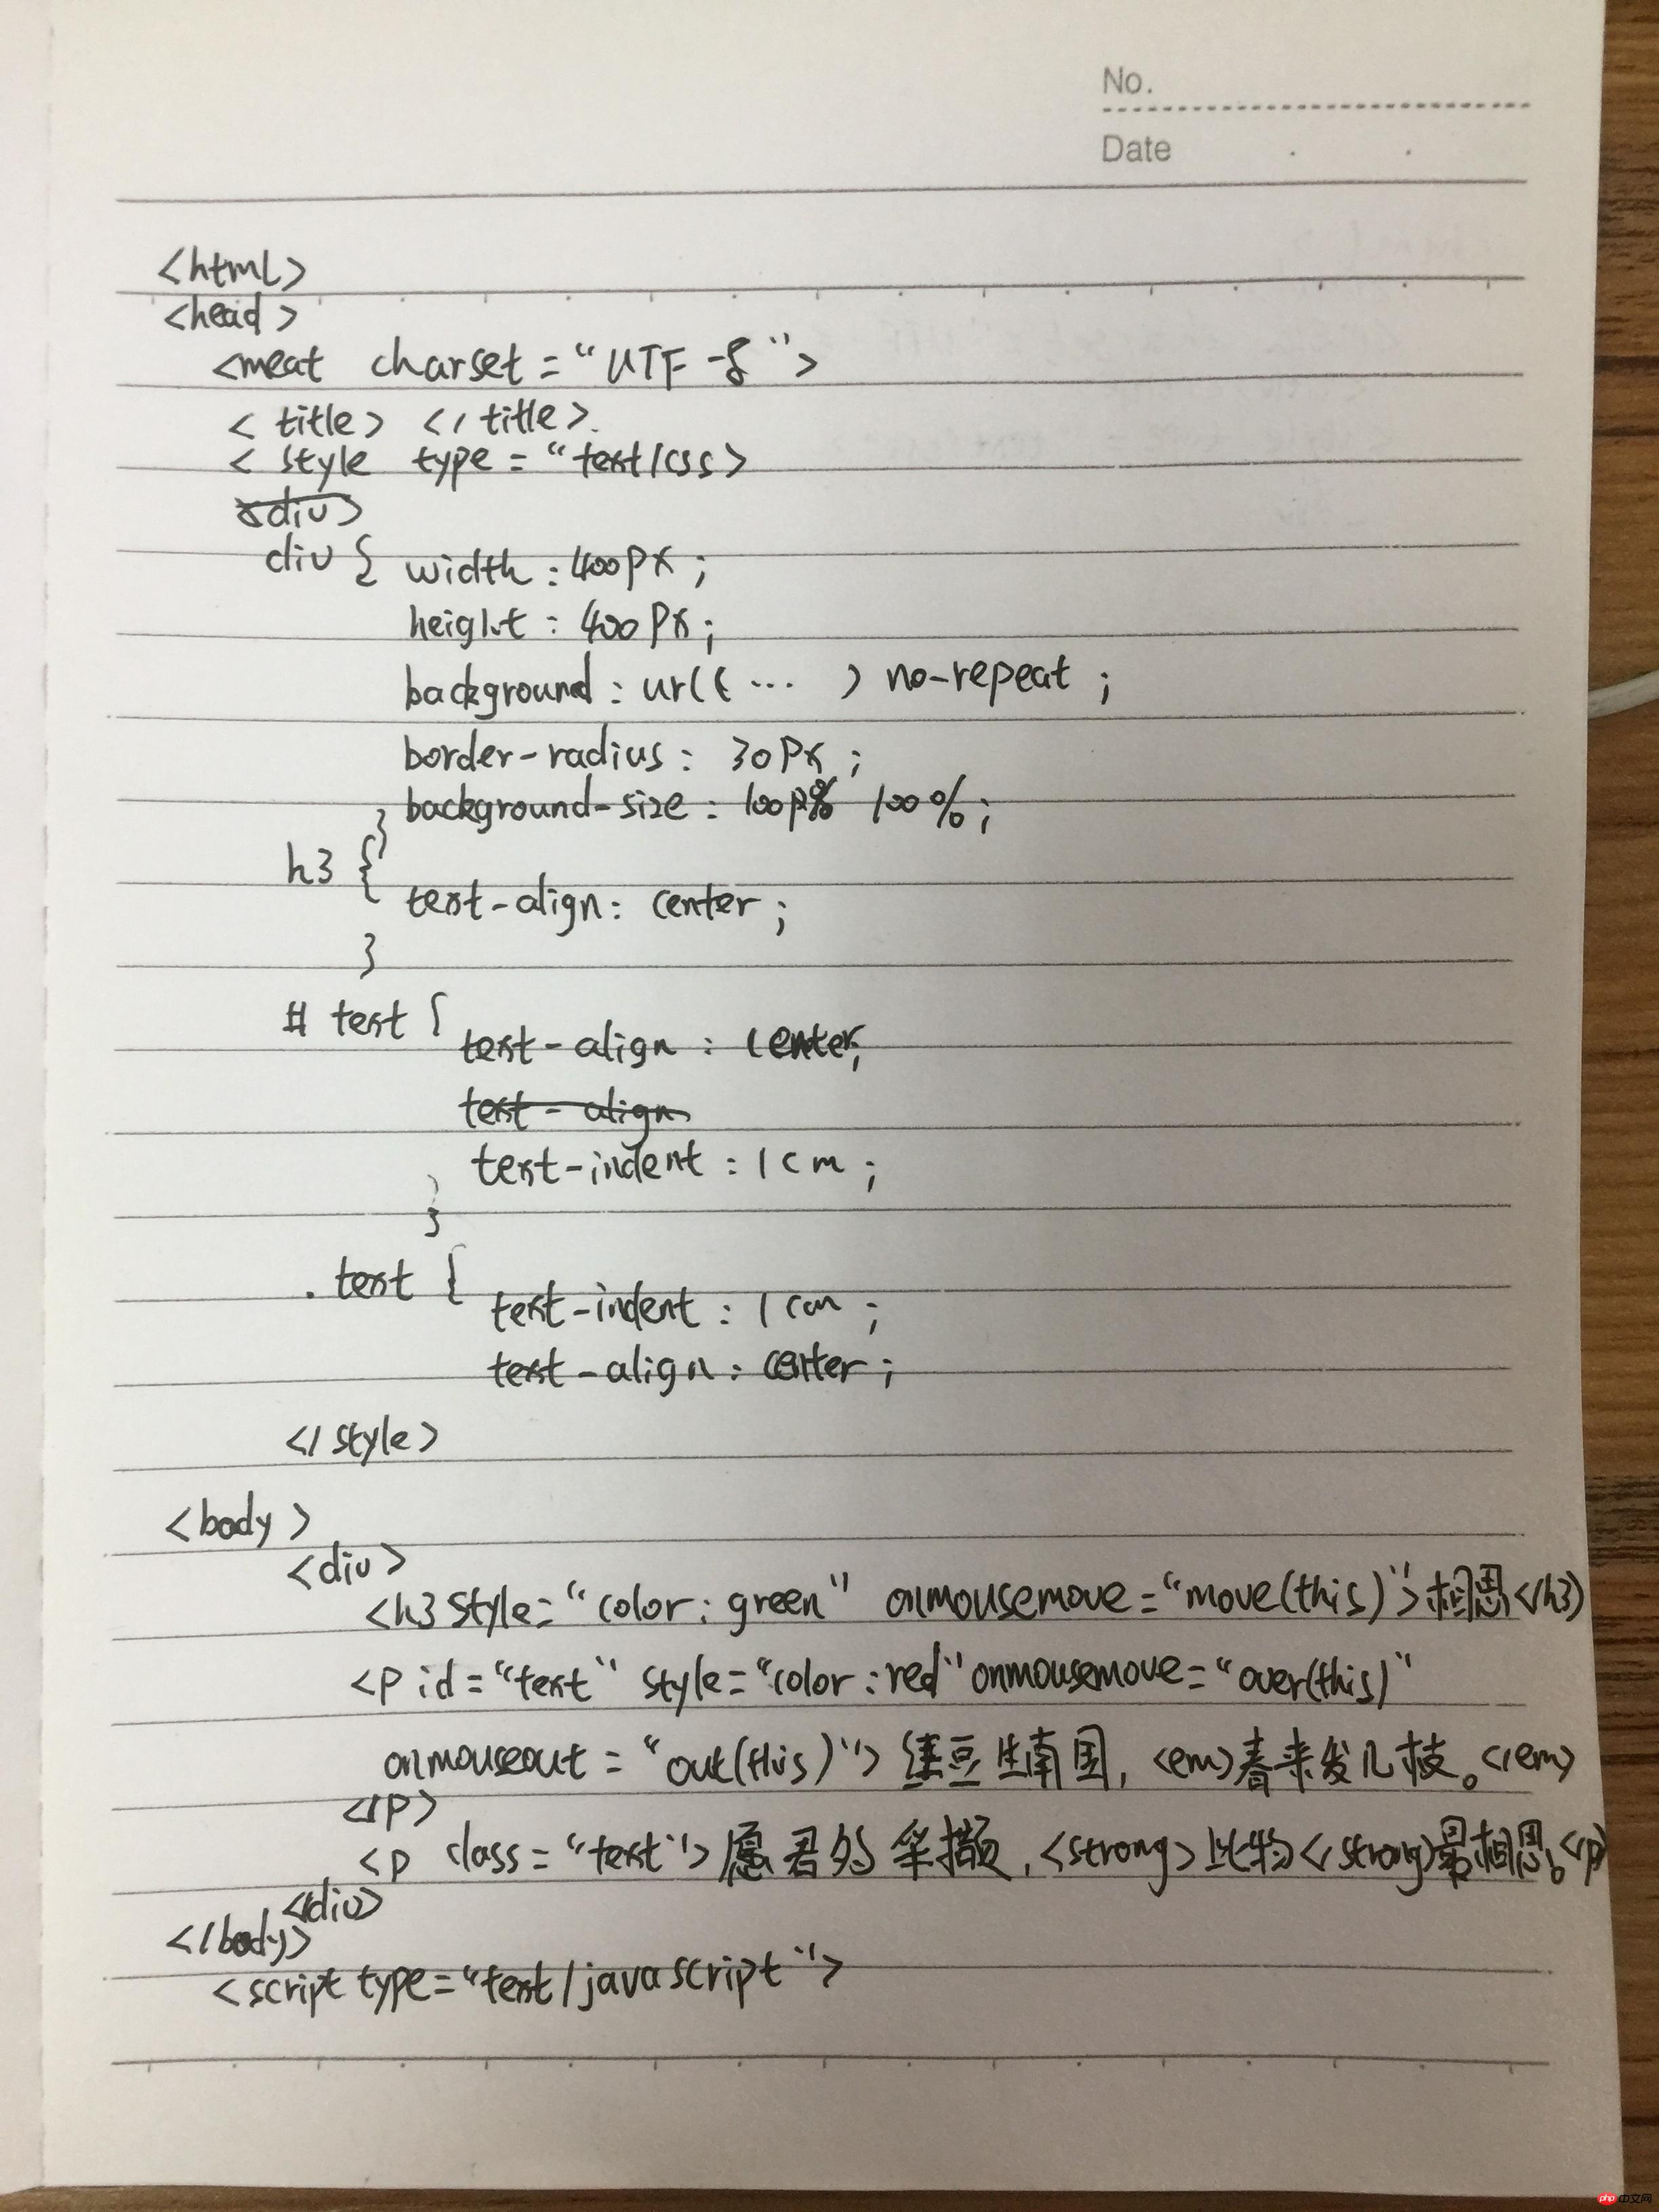 No.
Date
<html>
<head>
<meat charset="UTF-8">
<title> </title>
<style type="text/css>
<div>
div { width:400px;
height:400px;
background:url(... ) no-repeat;
border-radius: 30px;
background-size: 100% 100%;
}
h3 {
text-align: center;
}
# text {
text-align : center;
text-align
text-indent : 1cm;
}
.text {
text-indent : 1cm;
text-align : center;
</style>
<body>
<div>
<h3 style="color: green" onmousemove="move(this)">相思</h3>
<p id="text" style="color:red" onmousemove="over(this)"
onmouseout="out(this)">红豆生南国,<em>春来发几枝。</em>
</p>
<p class="text">愿君多采撷,<strong>此物</strong>最相思。</p>
</div>
</body>
<script type="text/javascript">
php 中文网